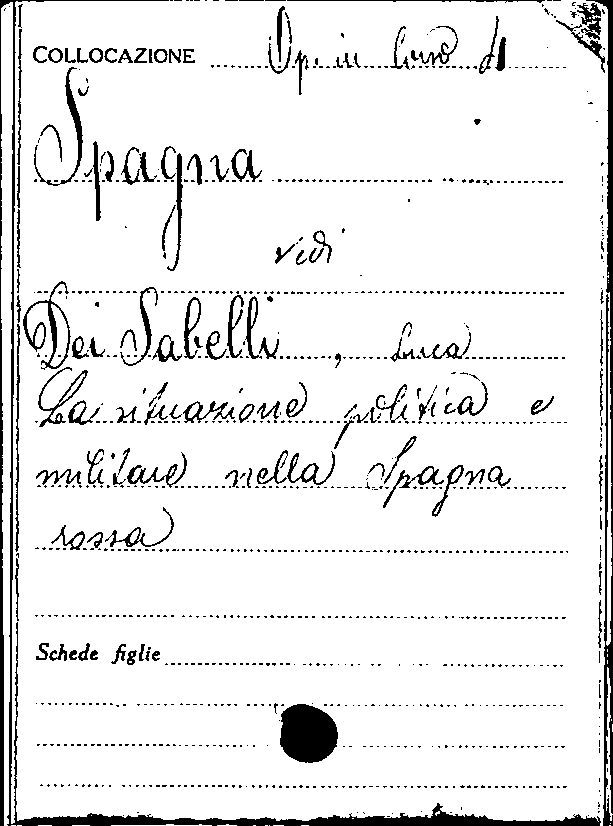 COLLOCAZIONE Op. in Corso
Spagna
vedi
Dei Sabelli, Luca
La situazione politica e
militare nella Spagna
rossa
Schede figlie